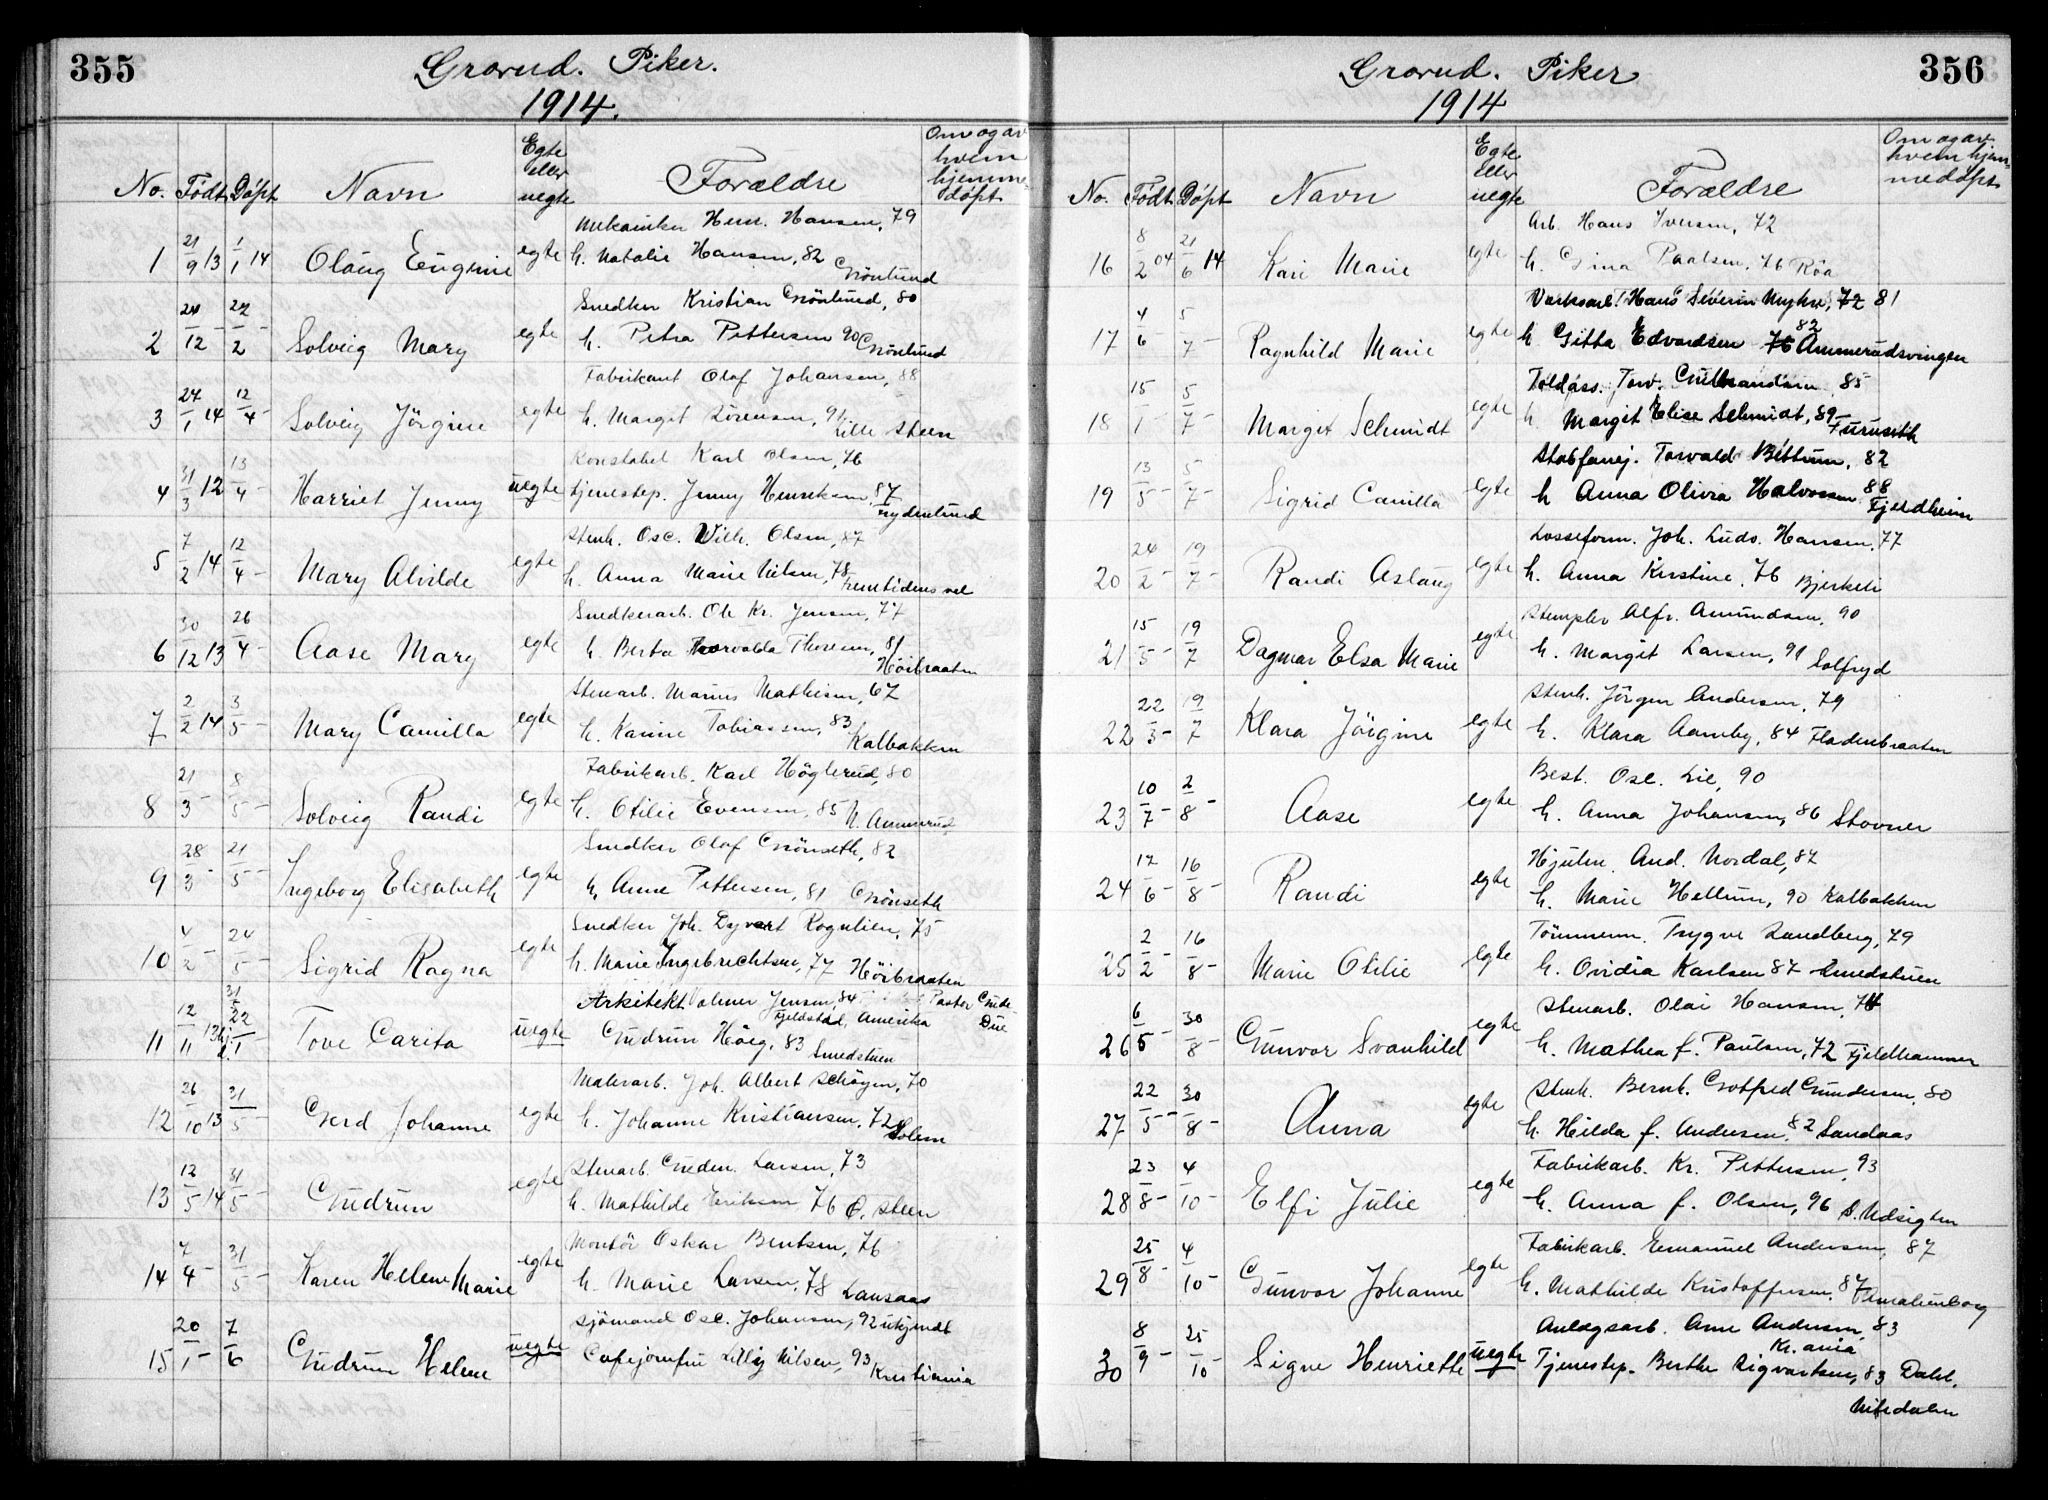 355
Grorud. Piker.
1914.
No. Født Døpt Navn Egte eller uegte Forældre Om og av hvem hjemmedøpt
Mekaniker Henr. Hansen, 79
1 21/9 13 1/1 14 Olaug Eugenie egte h. Natalie Hansen, 82 Grönlund
Snedker Kristian Grönlund, 80
2 24/12 - 22/2 - Solveig Mary egte h. Petra Pettersen 90 Grönlund
Fabrikant Olaf Johansen, 88
3 24/1 14 12/4 - Solveig Jörgine egte h. Margit Sörensen, 91 Lille Steen
Konstabel Karl Olsen, 76
4 31/3 12 13/4 - Harriet Jenny uegte tjenestep. Jenny Henriksen, 87 Frydenlund
Stenh. Osc. Wilh. Olsen, 87
5 7/2 14 12/4 - Mary Alvilde egte h. Anna Marie Nilsen, 78 Fremtidens vel
Snedkerarb. Ole Kr. Jensen, 77
6 30/12 13 26/4 - Aase Mary egte h. Berta Thorvalda Thoresen, 81 Höibraaten
Stenarb. Marius Mathisen, 67
7 2/2 14 3/5 - Mary Camilla egte h. Karine Tobiassen, 83 Kalbakken
Fabrikarb. Karl Höglerud, 80
8 21/3 - 8/5 - Solveig Randi egte h. Otilie Evensen, 85 N. Ammerud
Snedker Olaf Grönseth, 82
9 28/3 - 21/5 - Ingeborg Elisabeth egte h. Anne Pettersen, 81 Grönseth
Snedker Joh. Dyvert Rognlien, 75
10 4/2 - 24/5 - Sigrid Ragna egte h. Marie Ingebrechtsen, 77 Höibraaten
Arkitekt Valmer Jensen, 84 Fjeldstad, Amerika Pastor Gude-Due
11 12/11 13 31/5 hj. d. 22/1 Tove Carita uegte Gudrun Höeg, 83 Smedstuen
Malerarb. Joh. Albert Schöyen, 70
12 26/10 13 31/5 - Gerd Johanne egte h. Johanne Kristiansen, 72 Solem
Stenarb. Guden. Larsen, 73
13 12/5 14 31/5 - Gudrun egte h. Mathilde Eriksen 76 Ö. Steen
Montör Oskar Bentsen, 76
14 7/4 - 31/5 - Karen Hellene Marie egte h. Marie Larsen, 78 Lansaas
Sjömand Osc. Johansen, 92 ukjendt
15 20/1 - 7/6 Gudrun Helene uegte Cafejomfru Lilly Nilsen, 93 Kristiania
356
Grorud. Piker
1914
No. Født Døpt Navn Egte eller uegte Forældre Om og av hvem hjemmedøpt
Arb. Hans Iversen, 72
16 8/2 04 21/6 14 Kari Marie egte h. Gina Paalsen, 76 Röa
Verksarb. Hans Severin Myhre, 72 81
17 4/6 - 5/7 - Ragnhild Marie egte h Gitta Edvardsen 76 82 Ammerudsvingen
Toldass. Torv. Gulbrandsen 85
18 15/1 - 5/7 - Margit Schmidt egte h Margit Elise Schmidt, 89 Furuseth
Stabfanej. Torvald Bettum, 82
19 13/5 - 5/7 - Sigrid Camilla egte h Anna Olivia Halvorsen 88 Fjeldheim
Losseform. Joh. Ludv. Hansen, 77
20 24/2 - 19/7 - Randi Aslaug egte h. Anna Kirstine, 76 Bjerkeli
Stempler Alfr. Amundsen, 90
21 15/5 - 19/7 Dagmar Elsa Marie egte h. Margit Larsen, 91 Solfryd
Stenh. Jörgen Andersen, 79
22 22/3 - 19/7 Klara Jörgine egte h. Klara Aamby, 84 Fladenbraaten
Best. Osc. Lie, 90
23 10/7 - 2/8 - Aase egte h. Anna Johansen, 86 Stovner
Hjulm. And. Nordal, 87
24 17/6 - 16/8 - Randi egte h. Marie Hellum, 90 Kalbakken
Tömmerm. Trygve Sandberg, 79
25 2/2 16/8 - Marie Otilie egte h. Ovidia Karlsen 87 Smedstuen
Stenarb. Olai Hansen, 74
26 6/5 30/8 - Gunvor Svanhild egte h. Mathea f. Paulsen, 72 Fjeldhammer
Stenh. Bernh. Gotfred Gundersen, 80
27 22/5 - 30/8 - Anna egte h. Hilda f. Andersen, 82 Sandaas
Fabrikarb. Kr. Pettersen, 93
28 23/8 - 4/10 - Elfi Julie egte h. Anna f. Olsen, 96 S. Udsigten
Fabrikarb. Emanuel Andersen, 87
29 25/8 - 4/10 - Gunvor Johanne egte h. Mathilde Kristoffersen, 87 Amalienborg
Anlægsarb. Arne Andersen, 83 Kr.ania
30 8/9 - 25/10 - Signe Henriette uegte Tjenestep. Berthe Sigvartsen, 83 Dahl,
Nitedalen